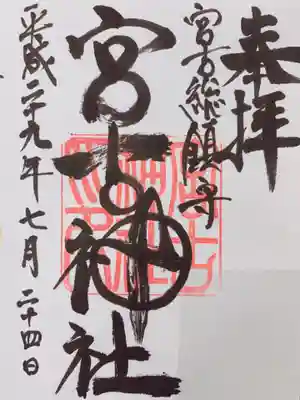 奉拝
宮古総鎮守
宮古神社
平成二十九年七月二十四日